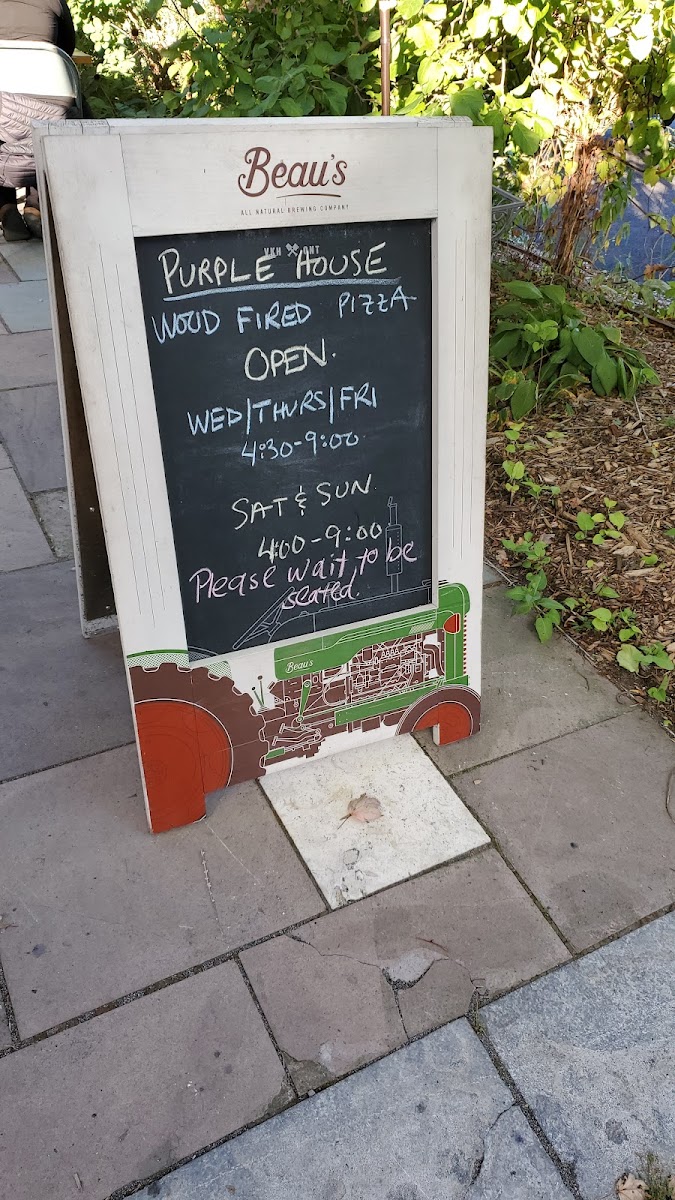 Beau's
ALL NATURAL BREWING COMPANY
VKH ONT
PURPLE HOUSE
WOOD FIRED PIZZA
OPEN.
WED/THURS/FRI
4:30-9:00
SAT & SUN
4:00-9:00
Please wait to be
seated.
Beau's